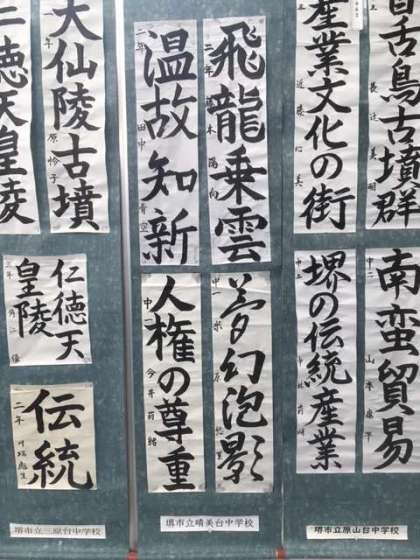 百舌鳥古墳群
産業文化の街
南蛮貿易
中二
山本
堺の伝統産業
中二
堺市立原山台中学校
飛龍乗雲
二年
温故知新
二年
田中
夢幻泡影
中一
人権の尊重
中一
今井
堺市立晴美台中学校
大仙陵古墳
仁徳天皇陵
仁徳天
皇陵
伝統
二年
堺市立三原台中学校